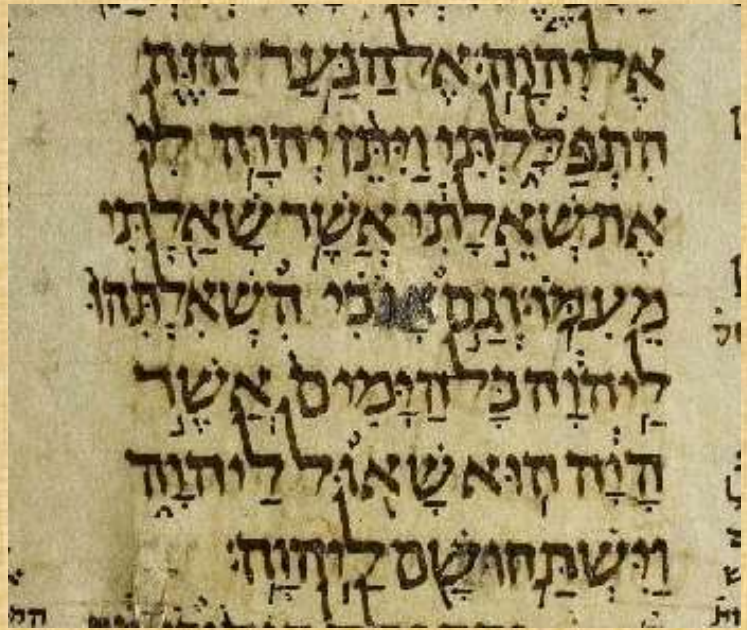 אֶל יְהוָֽה׃ אֶל הַנַּ֥עַר הַזֶּ֖ה
הִתְפַּלָּ֑לְתִּי וַיִּתֵּ֨ן יְהוָ֥ה לִי֙
אֶת שְׁאֵ֣לָתִ֔י אֲשֶׁ֥ר שָׁאַ֖לְתִּי
מֵעִמּֽוֹ׃ וְגַ֣ם אָנֹכִ֗י הִשְׁאִלְתִּ֙הוּ֙
לַֽיהוָ֔ה כָּל הַ֨יָּמִים֙ אֲשֶׁ֣ר
הָיָ֔ה ה֥וּא שָׁא֖וּל לַֽיהוָ֑ה
וַיִּשְׁתַּ֥חוּ שָׁ֖ם לַיהוָֽה׃